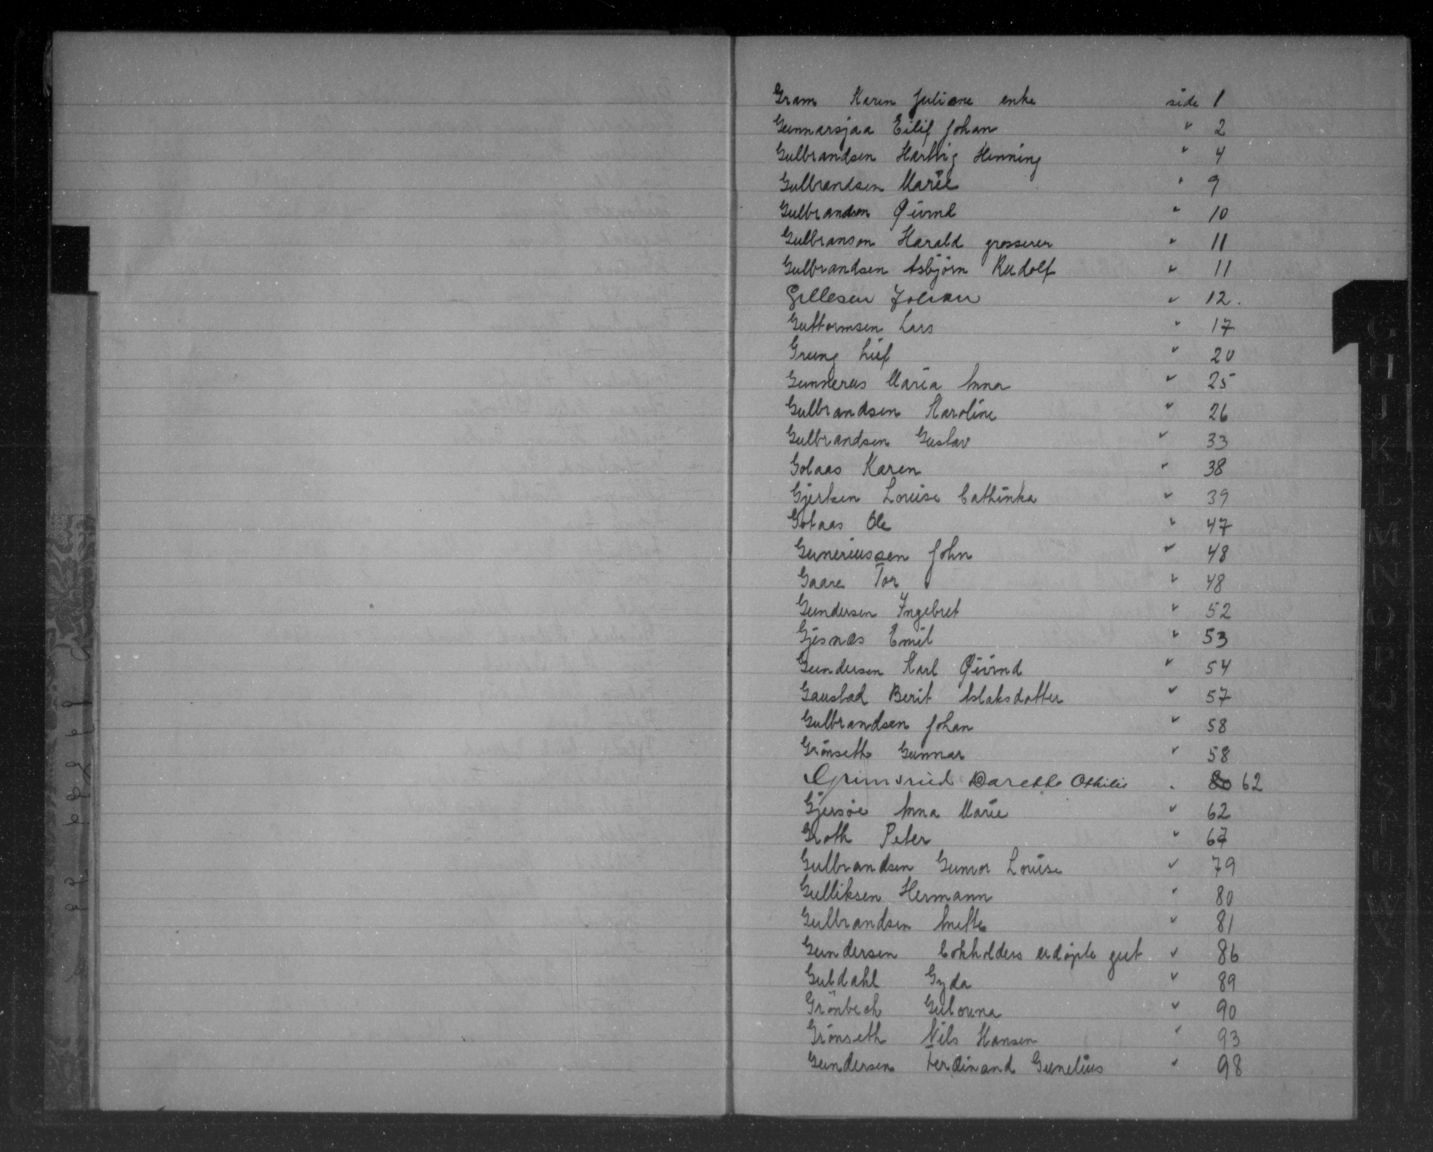 Gram Karen Juliane enke side 1
Gunnarsjaa Eilif Johan " 2
Gulbrandsen Hartvig Henning " 4
Gulbrandsen Marie " 9
Gulbrandsen Øivind " 10
Gulbranson Harald grosserer " 11
Gulbrandsen Asbjørn Rudolf " 11
Gillesen Johan " 12.
Guttormsen Lars " 17
Grung Leif " 20
Gunnerus Maria Anna " 25
Gulbrandsen Karoline " 26
Gulbrandsen Gustav " 33
Gotaas Karen " 38
Gjertsen Louise Cathinka " 39
Gotaas Ole " 47
Guneriussen John " 48
Gaare Tor " 48
Gundersen Ingebret " 52
Gjesnæs Emil " 53
Gundersen Karl Øivind " 54
Gaustad Berit Aslaksdatter " 57
Gulbrandsen Johan " 58
Grönseth Gunnar " 58
Grimsrud Othilie . 62
Gjersøe Anna Marie " 62
Groth Peter " 67
Gulbrandsen Gunvor Louise " 79
Gulliksen Hermann " 80
Gulbrandsen Anette " 81
Gundersen udøpte gut " 86
Guldahl Gyda " 89
Grönbech Gulouna " 90
Grönseth Nils Hansen " 93
Gundersen Ferdinand Gunelius " 98
G
H
I
J
K
L
M
N
O
P
R
S
T
V
W
Y